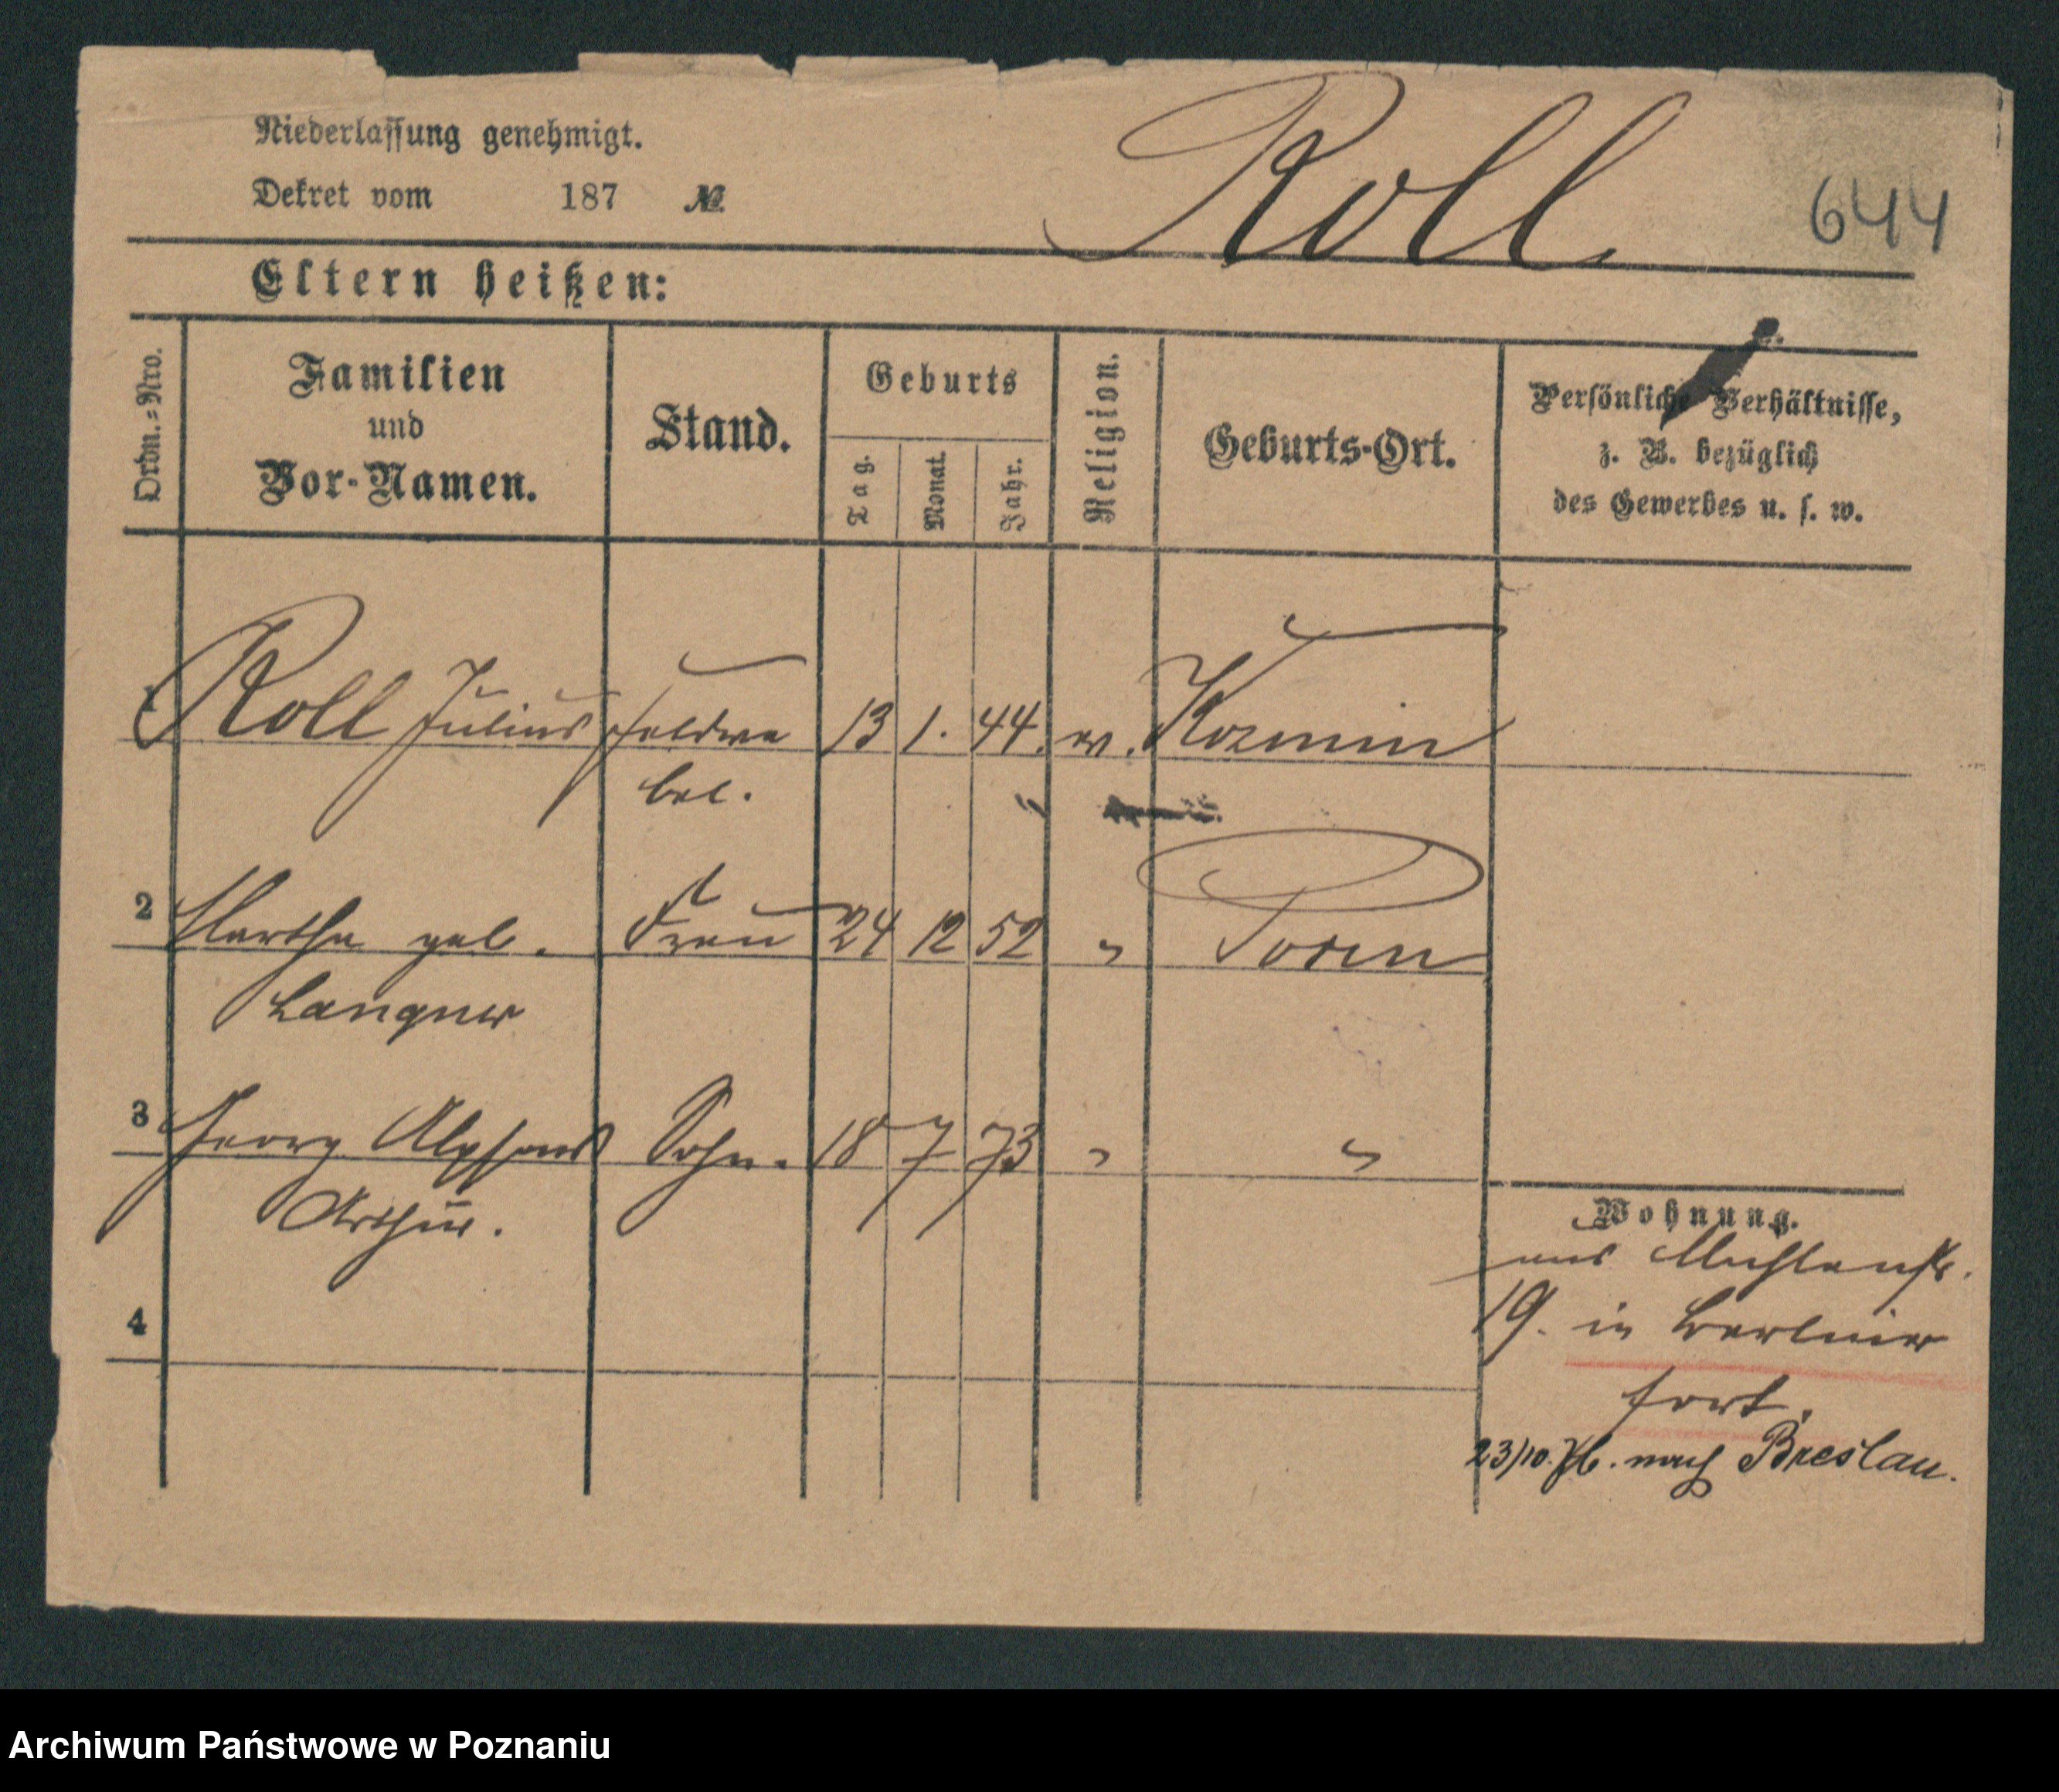 Niederlassung genehmigt.
Dekret vom 187 №
Roll
644
Eltern heißen:
Ordn.=Nro.
Familien
und
Vor-Namen.
Stand.
Geburts
Tag.
Monat.
Jahr.
Religion.
Geburts-Ort.
Persönliche Verhältnisse,
z. B. bezüglich
des Gewerbes u. s. w.
1 Roll Julius Feldwe 13 1. 44. ev. Kozmin
bel.
2 Martha geb. Frau 24 12 52 " Posen
Langner
3 Georg Alphons Sohn. 18 7 73 " "
Arthur.
Wohnung.
aus Mühlenstr.
19. in Berliner
fort.
4
23/10. 76. nach Breslau.
Archiwum Państwowe w Poznaniu